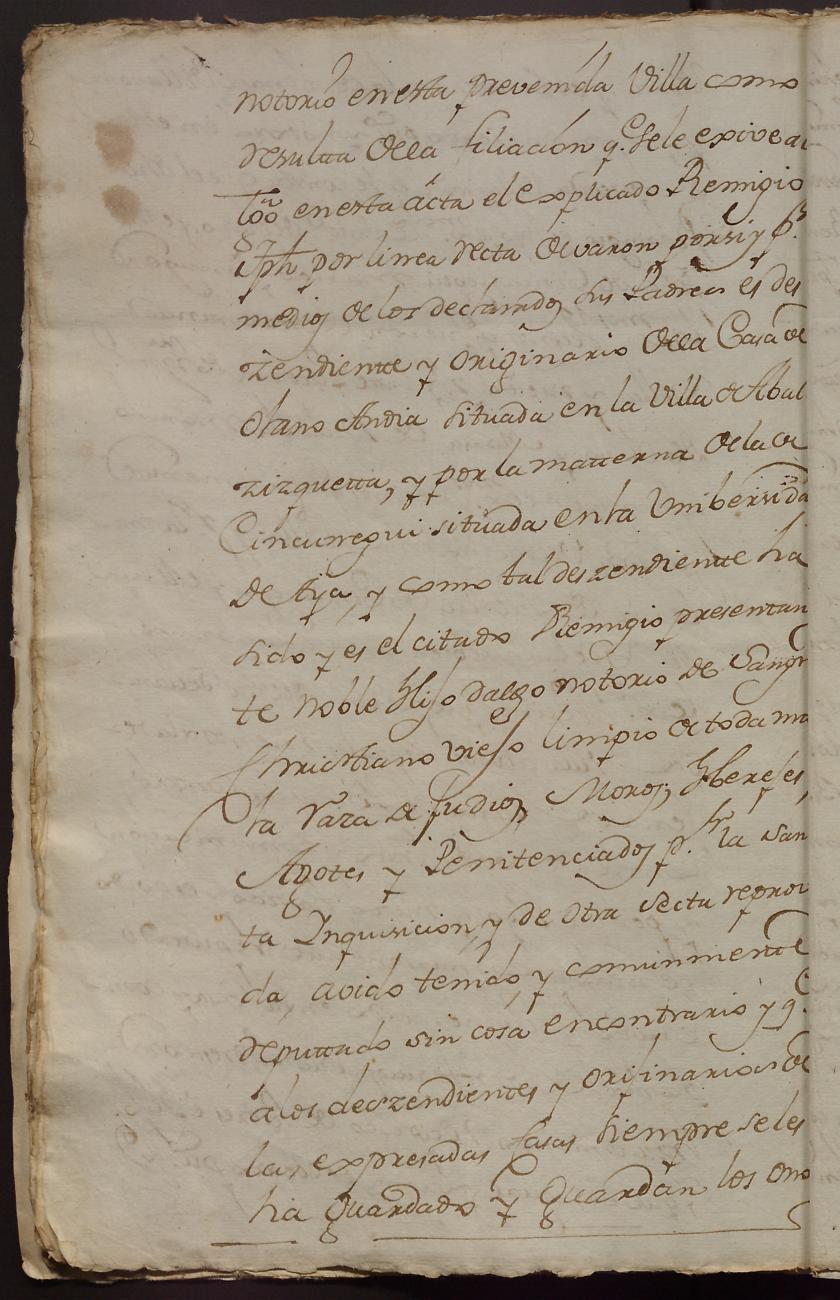 notorio en esta prevenida Villa como
resulta dela filiacion q.e sele exive al
en esta acta el explicado Remigio
Jph por linea recta de varon por si y p.r
medios de los declarados sus Padres es des
zendiente y originario dela Casa de
Olano Andia situada en la Villa de Abal
zizquetta, y por la matterna dela de
Cincunegui situada en la Unibersida
de Aya, y como tal deszendiente ha
sido y es el citado Remigio presentan
te Noble Hijo dalgo notorio de Sangr
Christiano viejo limpio de toda ma
la raza de Judios, Moros, Herejes,
Agotes y Penitenciados p.r la San
ta Inquisicion, y de otra secta reprova
da, avido tenido, y comunmente
reputtado sin cosa encontrario y q.e
a los deszendientes y orijinarios de
las expresadas casas siempre se les
ha guardado y guardan los ono